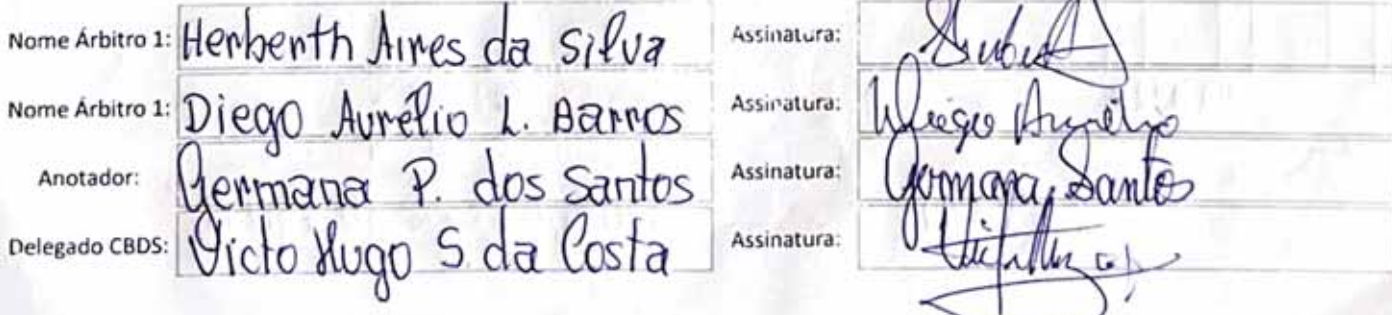 Nome Árbitro 1: Herberth Aires da Silva Assinatura:
Nome Árbitro 1: Diego Aurélio L. Barros Assinatura: Diego Aurélio
Anotador: Germana P. dos Santos Assinatura: Germana Santos
Delegado CBDS: Victo Hugo S. da Costa Assinatura: